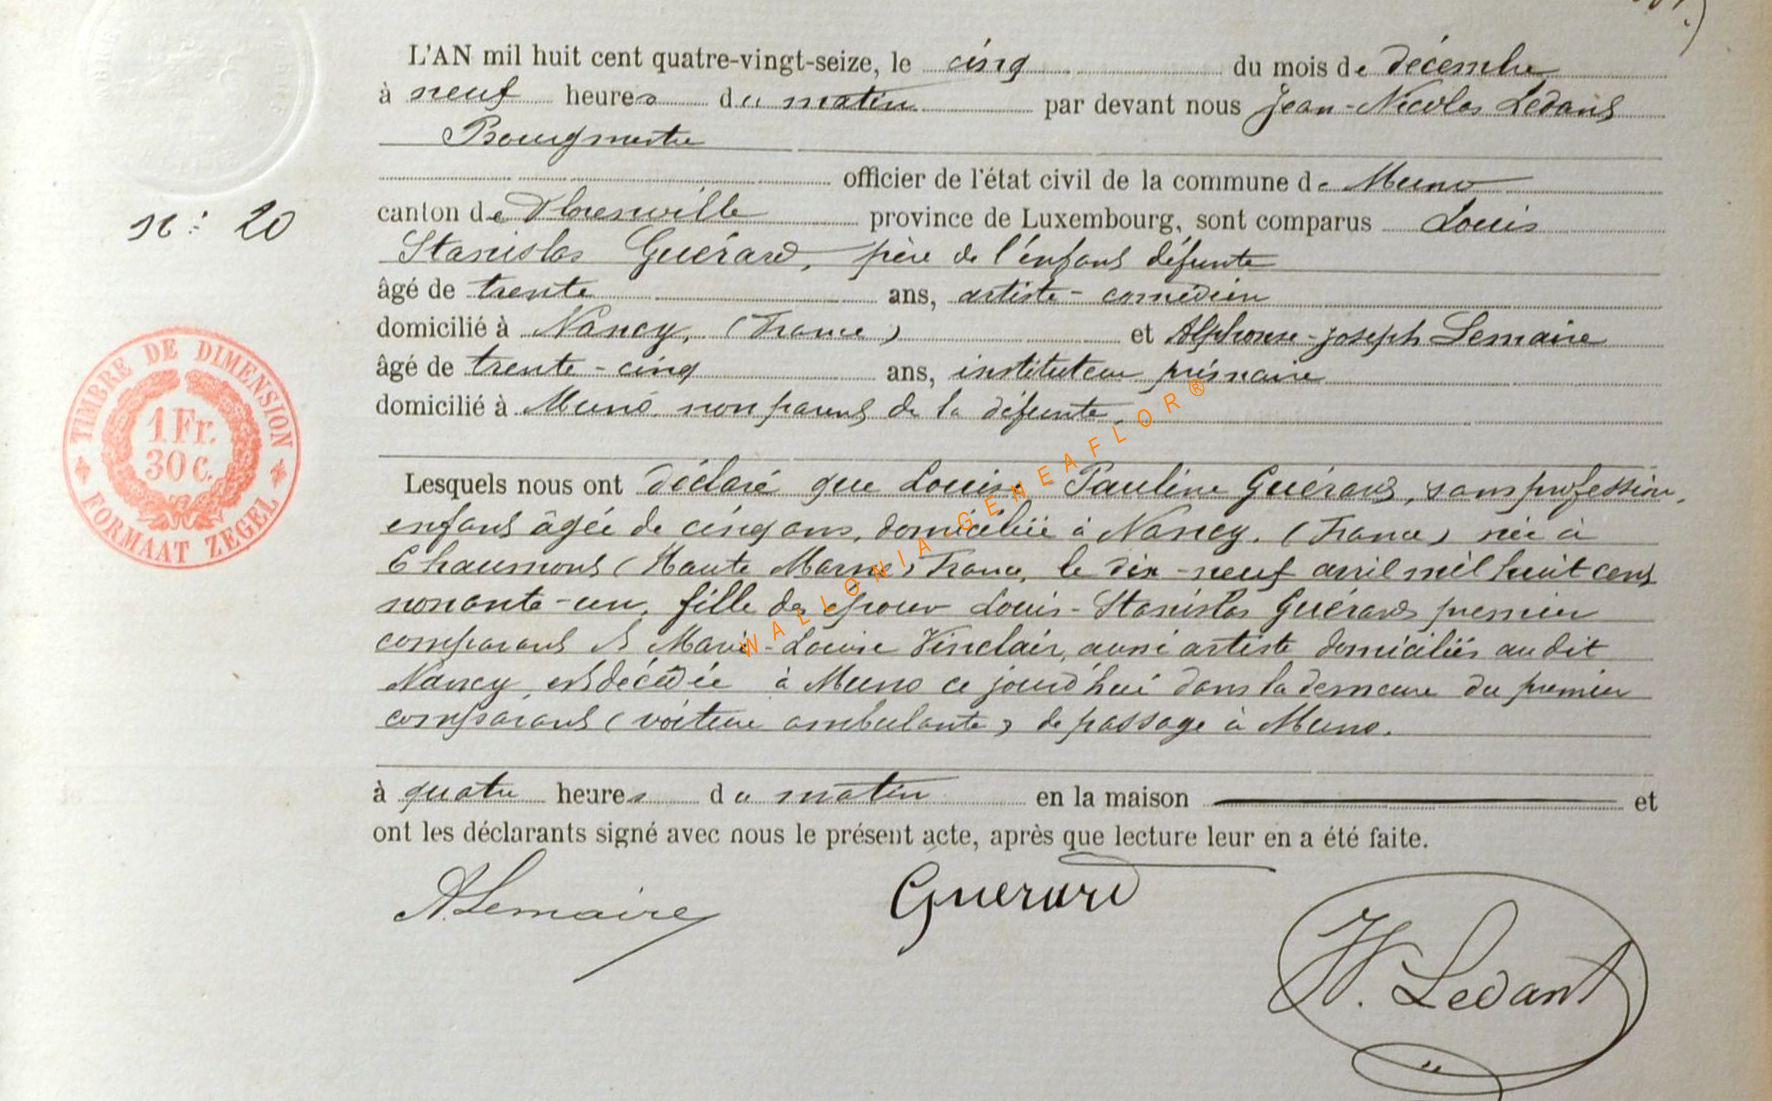 L'AN mil huit cent quatre-vingt-seize, le cinq du mois de décembre
à neuf heures du matin par devant nous Jean-Nicolas Ledant
Bourgmestre
officier de l'état civil de la commune de Muno
N°: 20
canton de Florenville province de Luxembourg, sont comparus Louis
Stanislas Guérard, père de l'enfant défunte
âgé de trente ans, artiste-comédien
domicilié à Nancy, (France) et Alphonse-Joseph Lemaire
âgé de trente-cinq ans, instituteur primaire
domicilié à Muno non parent de la défunte.
TIMBRE DE DIMENSION
1 Fr.
30 C.
FORMAAT ZEGEL
Lesquels nous ont déclaré que Louise Pauline Guérard, sans profession,
enfant âgée de cinq ans, domiciliée à Nancy, (France) née à
Chaumont (Haute Marne) France, le dix-neuf avril mil huit cent
nonante-un, fille des époux Louis-Stanislas Guérard premier
comparant et Marie-Louise Vinclair, aussi artiste domiciliés au dit
Nancy, est décédée à Muno ce jourd'hui dans la demeure du premier
comparant (voiture ambulante) de passage à Muno.
à quatre heures du matin en la maison et
ont les déclarants signé avec nous le présent acte, après que lecture leur en a été faite.
A. Lemaire Guerard
N. Ledant
WALLONIA GENEAFLOR®